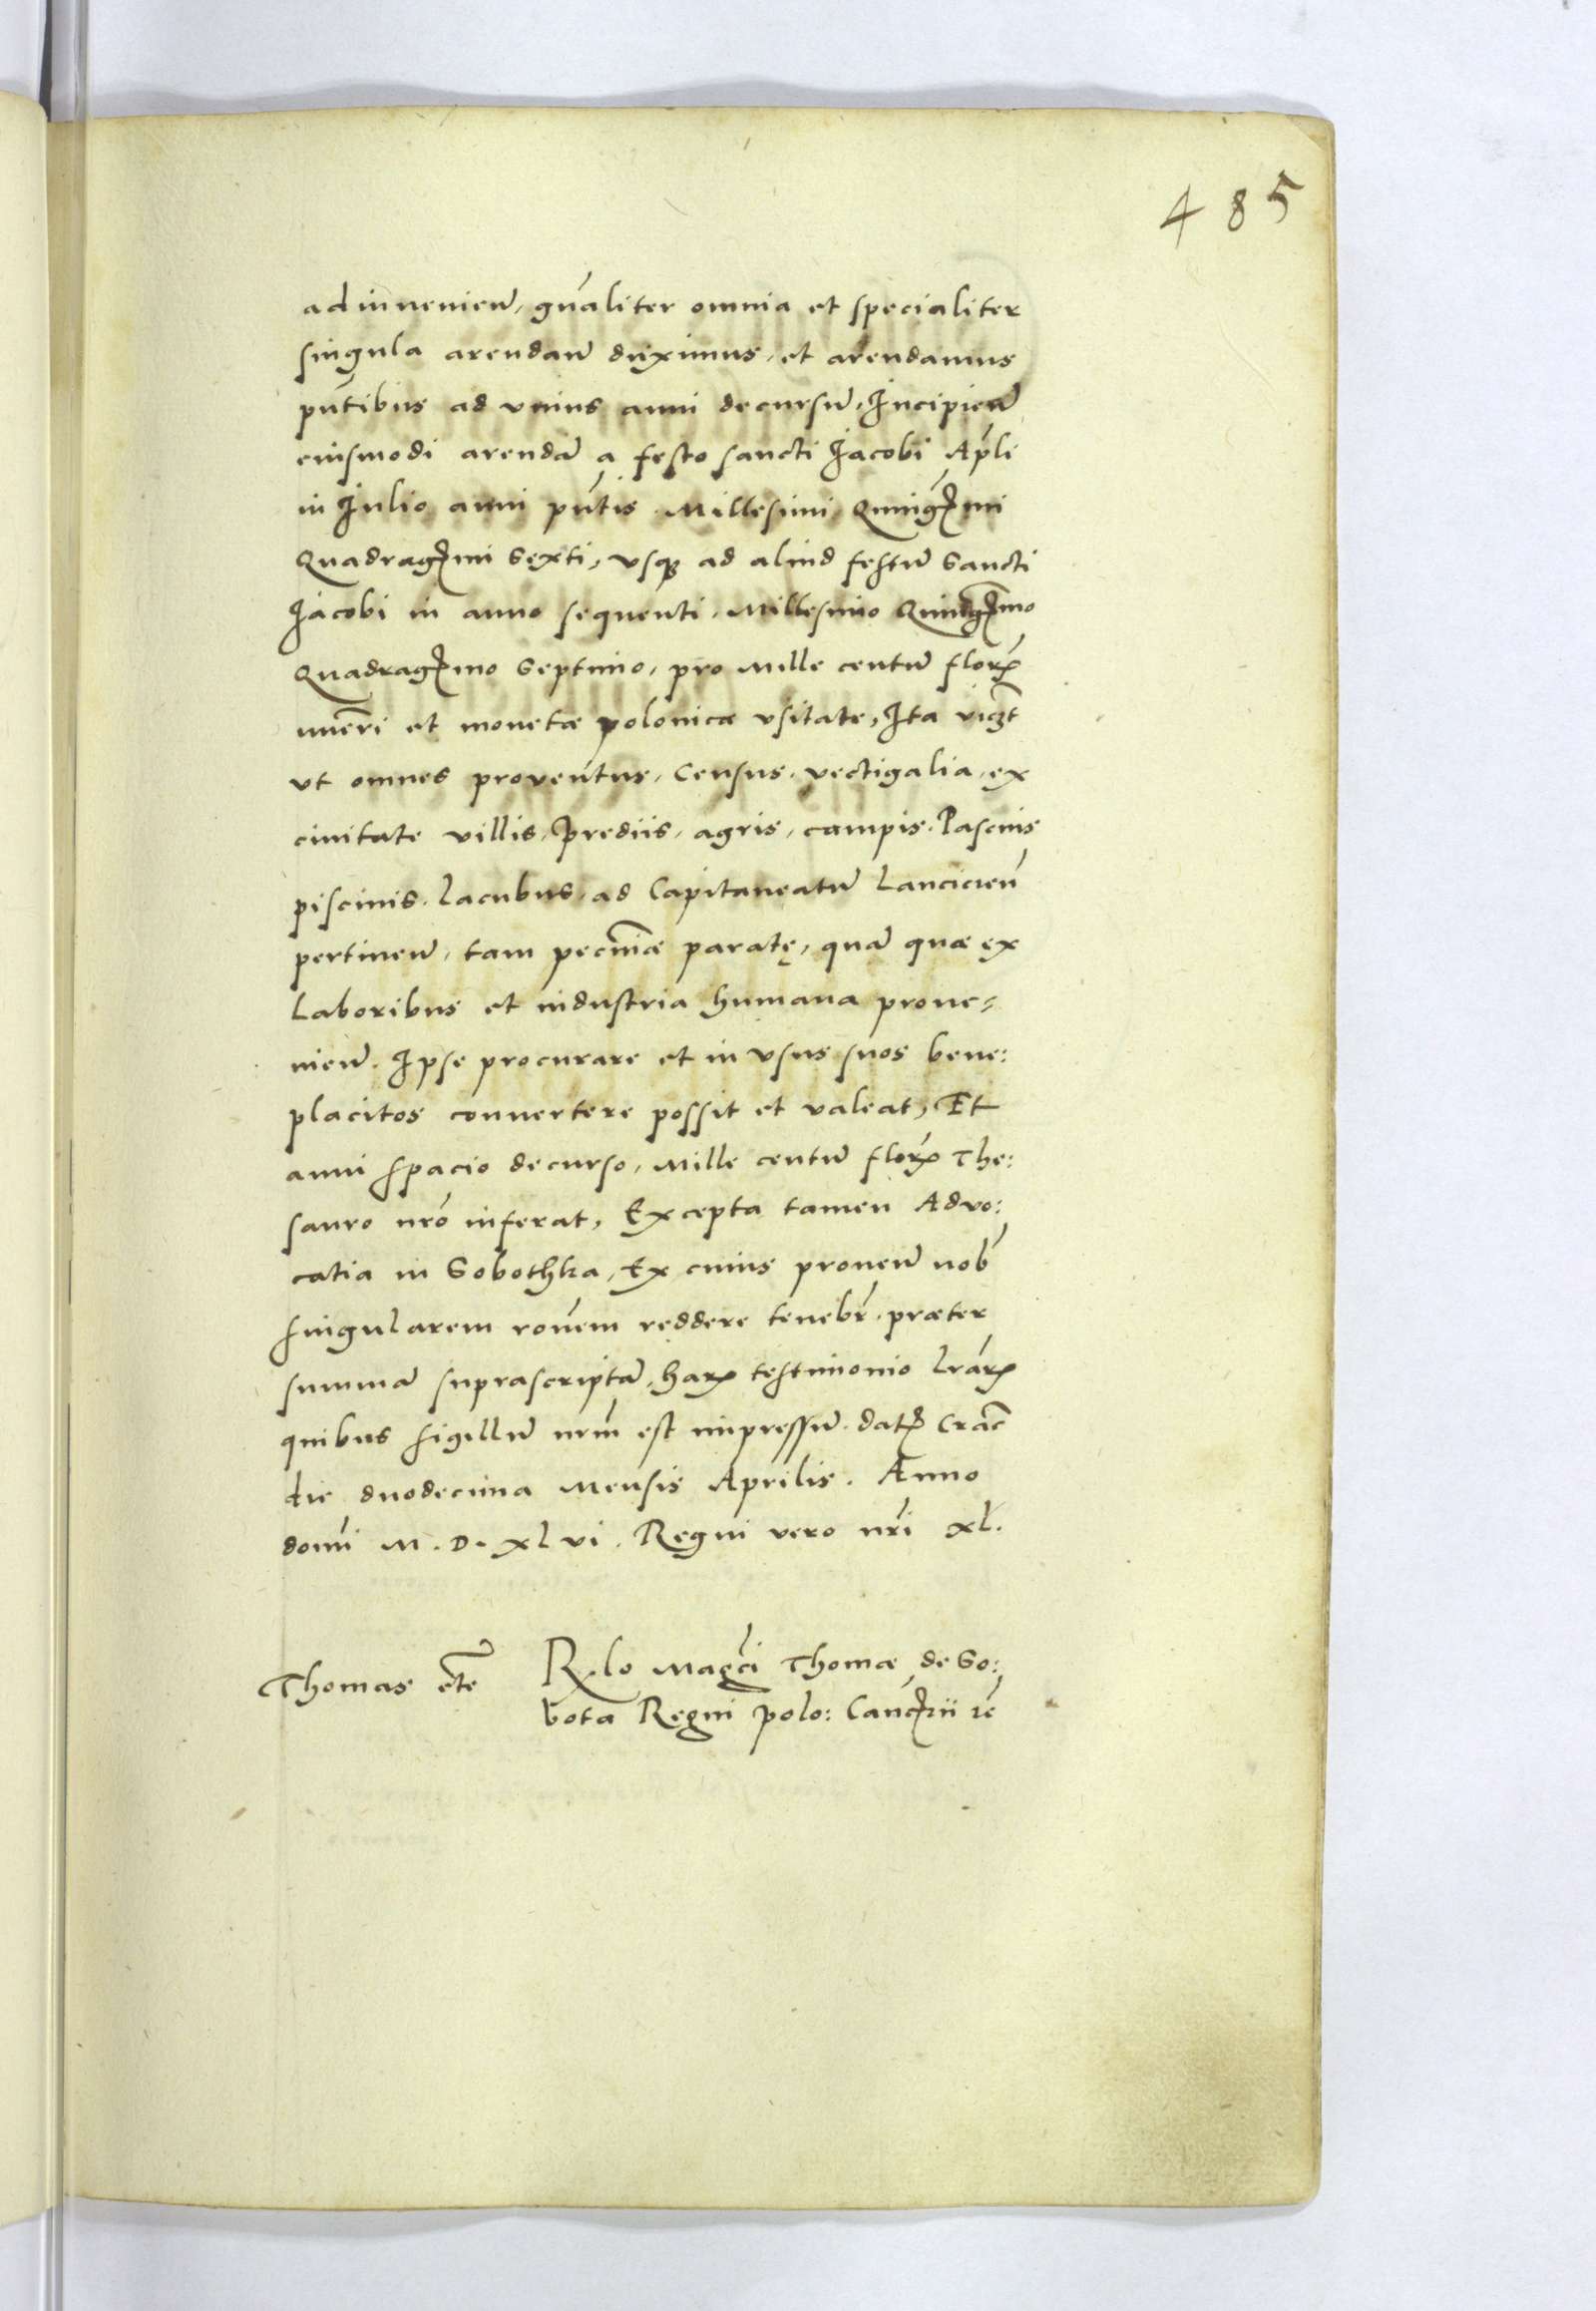 485
adinvenieñ, gñaliter omnia et specialiter
singula arendañ duximus, et arendamus
pñtibus ad vnius anni decursũ, Incipieñ
eiusmodi arendã a festo sancti Jacobi Apli
in Julio anni pñtis Millesimi Quingmi
Quadragmi Sexti, vsqꝫ ad aliud festũ Sancti
Jacobi in anno sequenti, Millesimo Quingmo
Quadragmo Septimo, pro Mille centũ florꝝ
nũeri et monetæ polonicæ vsitate, Ita viczt
vt omnes proventus, Census, vectigalia, ex
civitate villis, prediis, agris, campis, Pascuis
piscinis, Lacubus, ad Capitaneatũ Lancicieñ
pertineñ, tam pecuniæ paratę, quã quæ ex
Laboribus et industria humana prove-
nieñ. Ipse procurare et in vsus suos bene:
placitos convertere possit et valeat, Et
anni spacio decurso, Mille centũ florꝝ The:
sauro nrõ inferat, Excepta tamen Advo:
catia in Sobothka, Ex cuius proveñ nob
singularem rõnem reddere tenebr̃, præter
summã suprascriptã, harꝝ testimonio Lrãrꝝ
quibus sigillũ nrm̃ est impressũ. dat Crac̃
die duodecima Mensis Aprilis. Anno
domi M. D. XL vi. Regni vero nrĩ XL.
Thomas etc
R. lo Magci Thomæ de So:
bota Regni polo: Canc̃rii rẽ